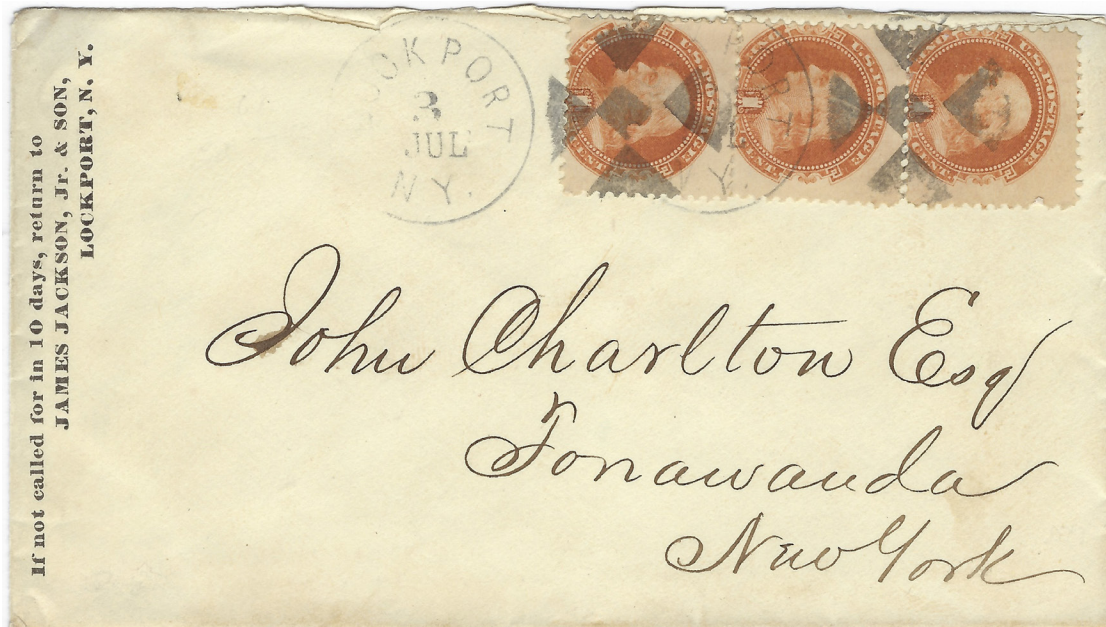 If not called for in 10 days, return to
JAMES JACKSON, Jr. & SON,
LOCKPORT, N. Y.
OCKPORT
3
JUL
N Y.
U.S. POSTAGE
U.S. POSTAGE
U.S. POSTAGE
John Charlton Esq
Tonawanda
New York